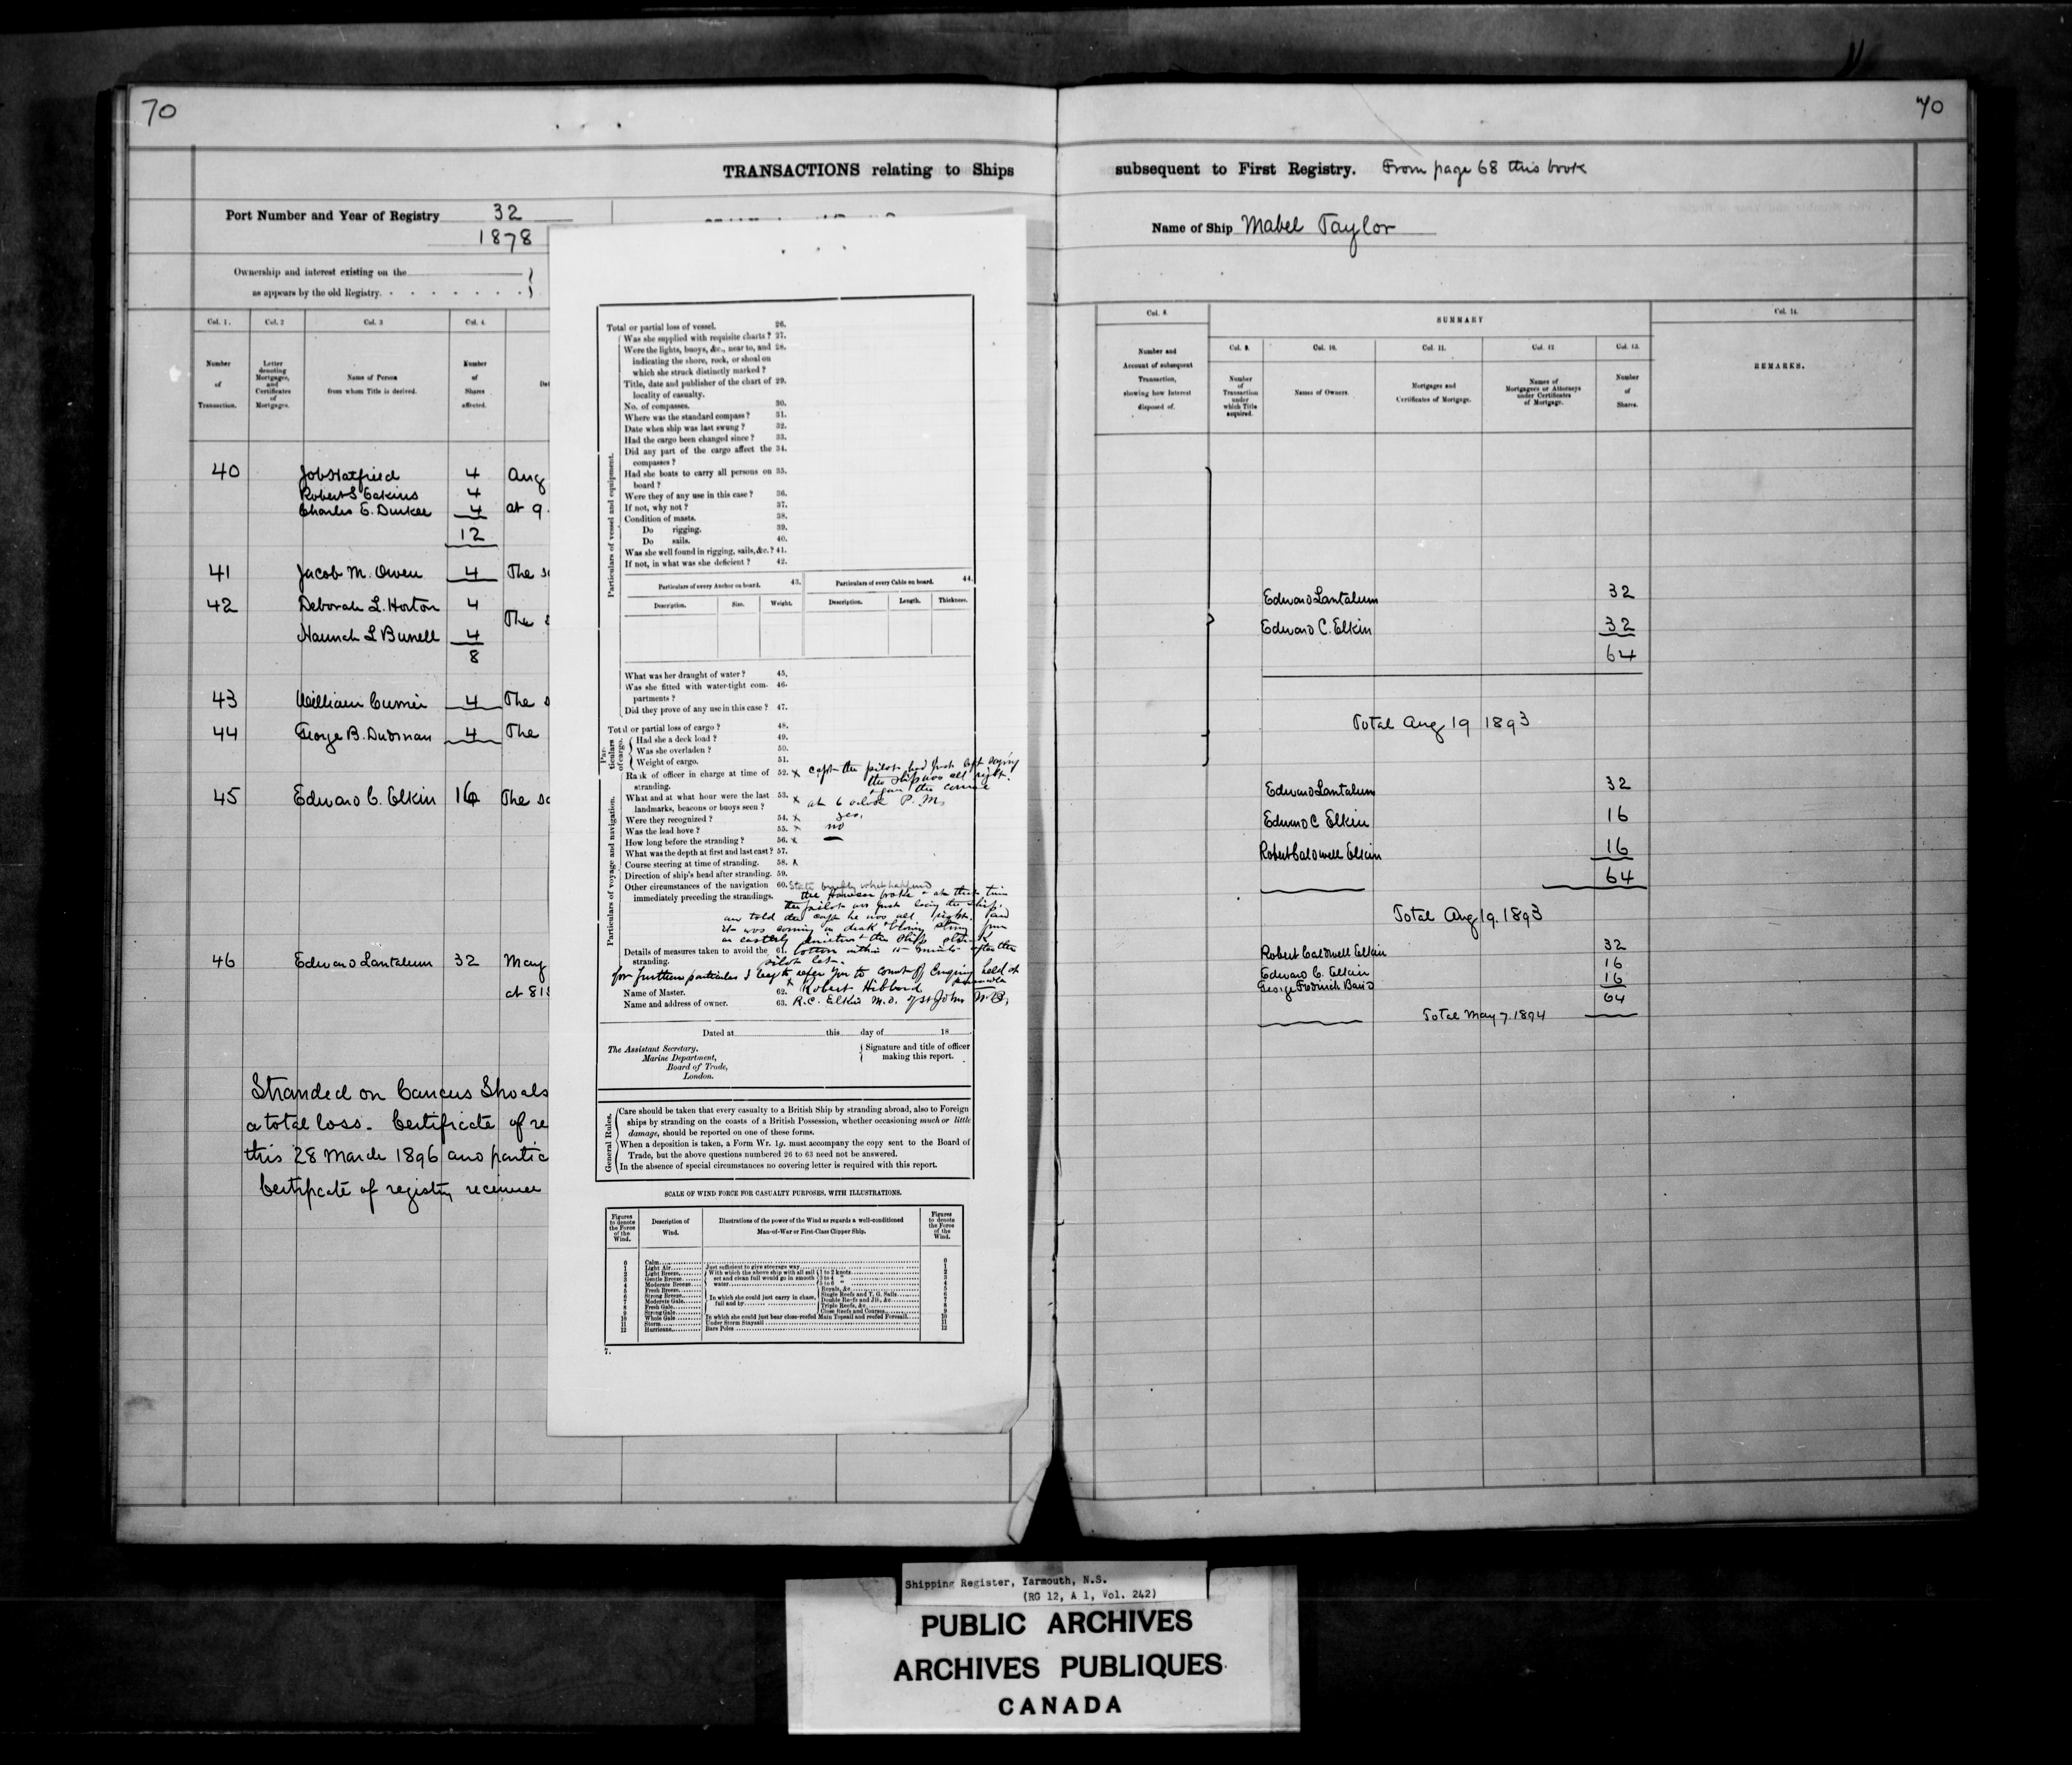 70
TRANSACTIONS relating to Ships
Port Number and Year of Registry 32
1878
Ownership and interest existing on the
as appears by the old Registry.
Col. 1. Col. 2 Col. 3 Col. 4.
Number of Transaction.
Letter denoting Mortgages, and Certificates of Mortgages.
Name of Person from whom Title is derived.
Number of Shares affected.
40 Job Hatfield 4 Aug
Robert S Eakins 4
Charles E. Durkee 4 at 9.
12
41 Jacob M. Owen 4 The
42 Deborah L. Horton 4
The
Hannah L Burrell 4
8
43 William Currier 4 The
44 George B. Dudman 4 The
45 Edward C. Elkin 16 The
46 Edward Lantalum 32 May
at
Stranded on Shoals
a total loss. Certificate of
this 28 March 1896 and
Certificate of registry
Total or partial loss of vessel. 26.
Particulars of vessel and equipment.
Was she supplied with requisite charts? 27.
Were the lights, buoys, &c., near to, and 28.
indicating the shore, rock, or shoal on
which she struck distinctly marked?
Title, date and publisher of the chart of 29.
locality of casualty.
No. of compasses. 30.
Where was the standard compass? 31.
Date when ship was last swung? 32.
Had the cargo been changed since? 33.
Did any part of the cargo affect the 34.
compasses?
Had she boats to carry all persons on 35.
board?
Were they of any use in this case? 36.
If not, why not? 37.
Condition of masts. 38.
Do rigging. 39.
Do sails. 40.
Was she well found in rigging, sails, &c.? 41.
If not, in what was she deficient? 42.
Particulars of every Anchor on board. 43. Particulars of every Cable on board. 44.
Description. Size. Weight. Description. Length. Thickness.
What was her draught of water? 45.
Was she fitted with water-tight com- 46.
partments?
Did they prove of any use in this case? 47.
Total or partial loss of cargo? 48.
Particulars of cargo.
Had she a deck load? 49.
Was she overladen? 50.
Weight of cargo. 51.
Particulars of voyage and navigation.
Rank of officer in charge at time of 52. x Capt the pilot had just left saying
stranding. the ship was all right.
What and at what hour were the last 53. x
landmarks, beacons or buoys seen? at 6 oclock P. M,
Were they recognized? 54. x yes.
Was the lead hove? 55. x no
How long before the stranding? 56. x —
What was the depth at first and last cast? 57.
Course steering at time of stranding. 58.
Direction of ship's head after stranding. 59.
Other circumstances of the navigation 60. State briefly what happened
immediately preceding the strandings. the hawser broke
the pilot was just the ship.
told the capt he was all right. and
it was coming dark
the ship struck
Details of measures taken to avoid the 61. bottom within 15 after the
stranding. pilot
for further particulars I beg to refer you to court of Enquiry held at
Name of Master. 62. Robert Hibbard
Name and address of owner. 63. R.C. Elkin M.O. of St John N.B,
Dated at this day of 18
The Assistant Secretary,
Marine Department,
Board of Trade,
London.
Signature and title of officer
making this report.
General Rules.
Care should be taken that every casualty to a British Ship by stranding abroad, also to Foreign
ships by stranding on the coasts of a British Possession, whether occasioning much or little
damage, should be reported on one of these forms.
When a deposition is taken, a Form Wr. 1g. must accompany the copy sent to the Board of
Trade, but the above questions numbered 26 to 63 need not be answered.
In the absence of special circumstances no covering letter is required with this report.
SCALE OF WIND FORCE FOR CASUALTY PURPOSES, WITH ILLUSTRATIONS.
Figures to denote the Force of the Wind.
Description of Wind.
Illustrations of the power of the Wind as regards a well-conditioned
Man-of-War or First-Class Clipper Ship.
Figures to denote the Force of the Wind.
0 Calm 0
1 Light Air Just sufficient to give steerage way 1
2 Light Breeze With which the above ship with all sail 1 to 2 knots 2
3 Gentle Breeze set and clean full would go in smooth 3 to 4 " 3
4 Moderate Breeze water 5 to 6 " 4
5 Fresh Breeze Royals, &c 5
6 Strong Breeze In which she could just carry in chase, Single Reefs and T. G. Sails 6
7 Moderate Gale full and by Double Reefs and Jib, &c 7
8 Fresh Gale Triple Reefs, &c 8
9 Strong Gale Close Reefs and Courses 9
10 Whole Gale In which she could just bear close-reefed Main Topsail and reefed Foresail 10
11 Storm Under Storm Staysail 11
12 Hurricane Bare Poles 12
7.
70
subsequent to First Registry. From page 68 this book
Name of Ship Mabel Taylor
Col. 8. SUMMARY Col. 14.
Number and Account of subsequent Transaction, showing how Interest disposed of.
Col. 9. Col. 10. Col. 11. Col. 12 Col. 13.
Number of Transaction under which Title acquired.
Names of Owners.
Mortgages and Certificates of Mortgage.
Names of Mortgagees or Attorneys under Certificates of Mortgage.
Number of Shares.
REMARKS.
Edward Lantalum 32
Edward C. Elkin 32
64
Total Aug 19 1893
Edward Lantalum 32
Edward C Elkin 16
Robert Caldwell Elkin 16
64
Total Aug 19. 1893
Robert Caldwell Elkin 32
Edward C. Elkin 16
George Fredrick Baird 16
64
Total May 7. 1894
Shipping Register, Yarmouth, N.S.
(RG 12, A 1, Vol. 242)
PUBLIC ARCHIVES
ARCHIVES PUBLIQUES
CANADA